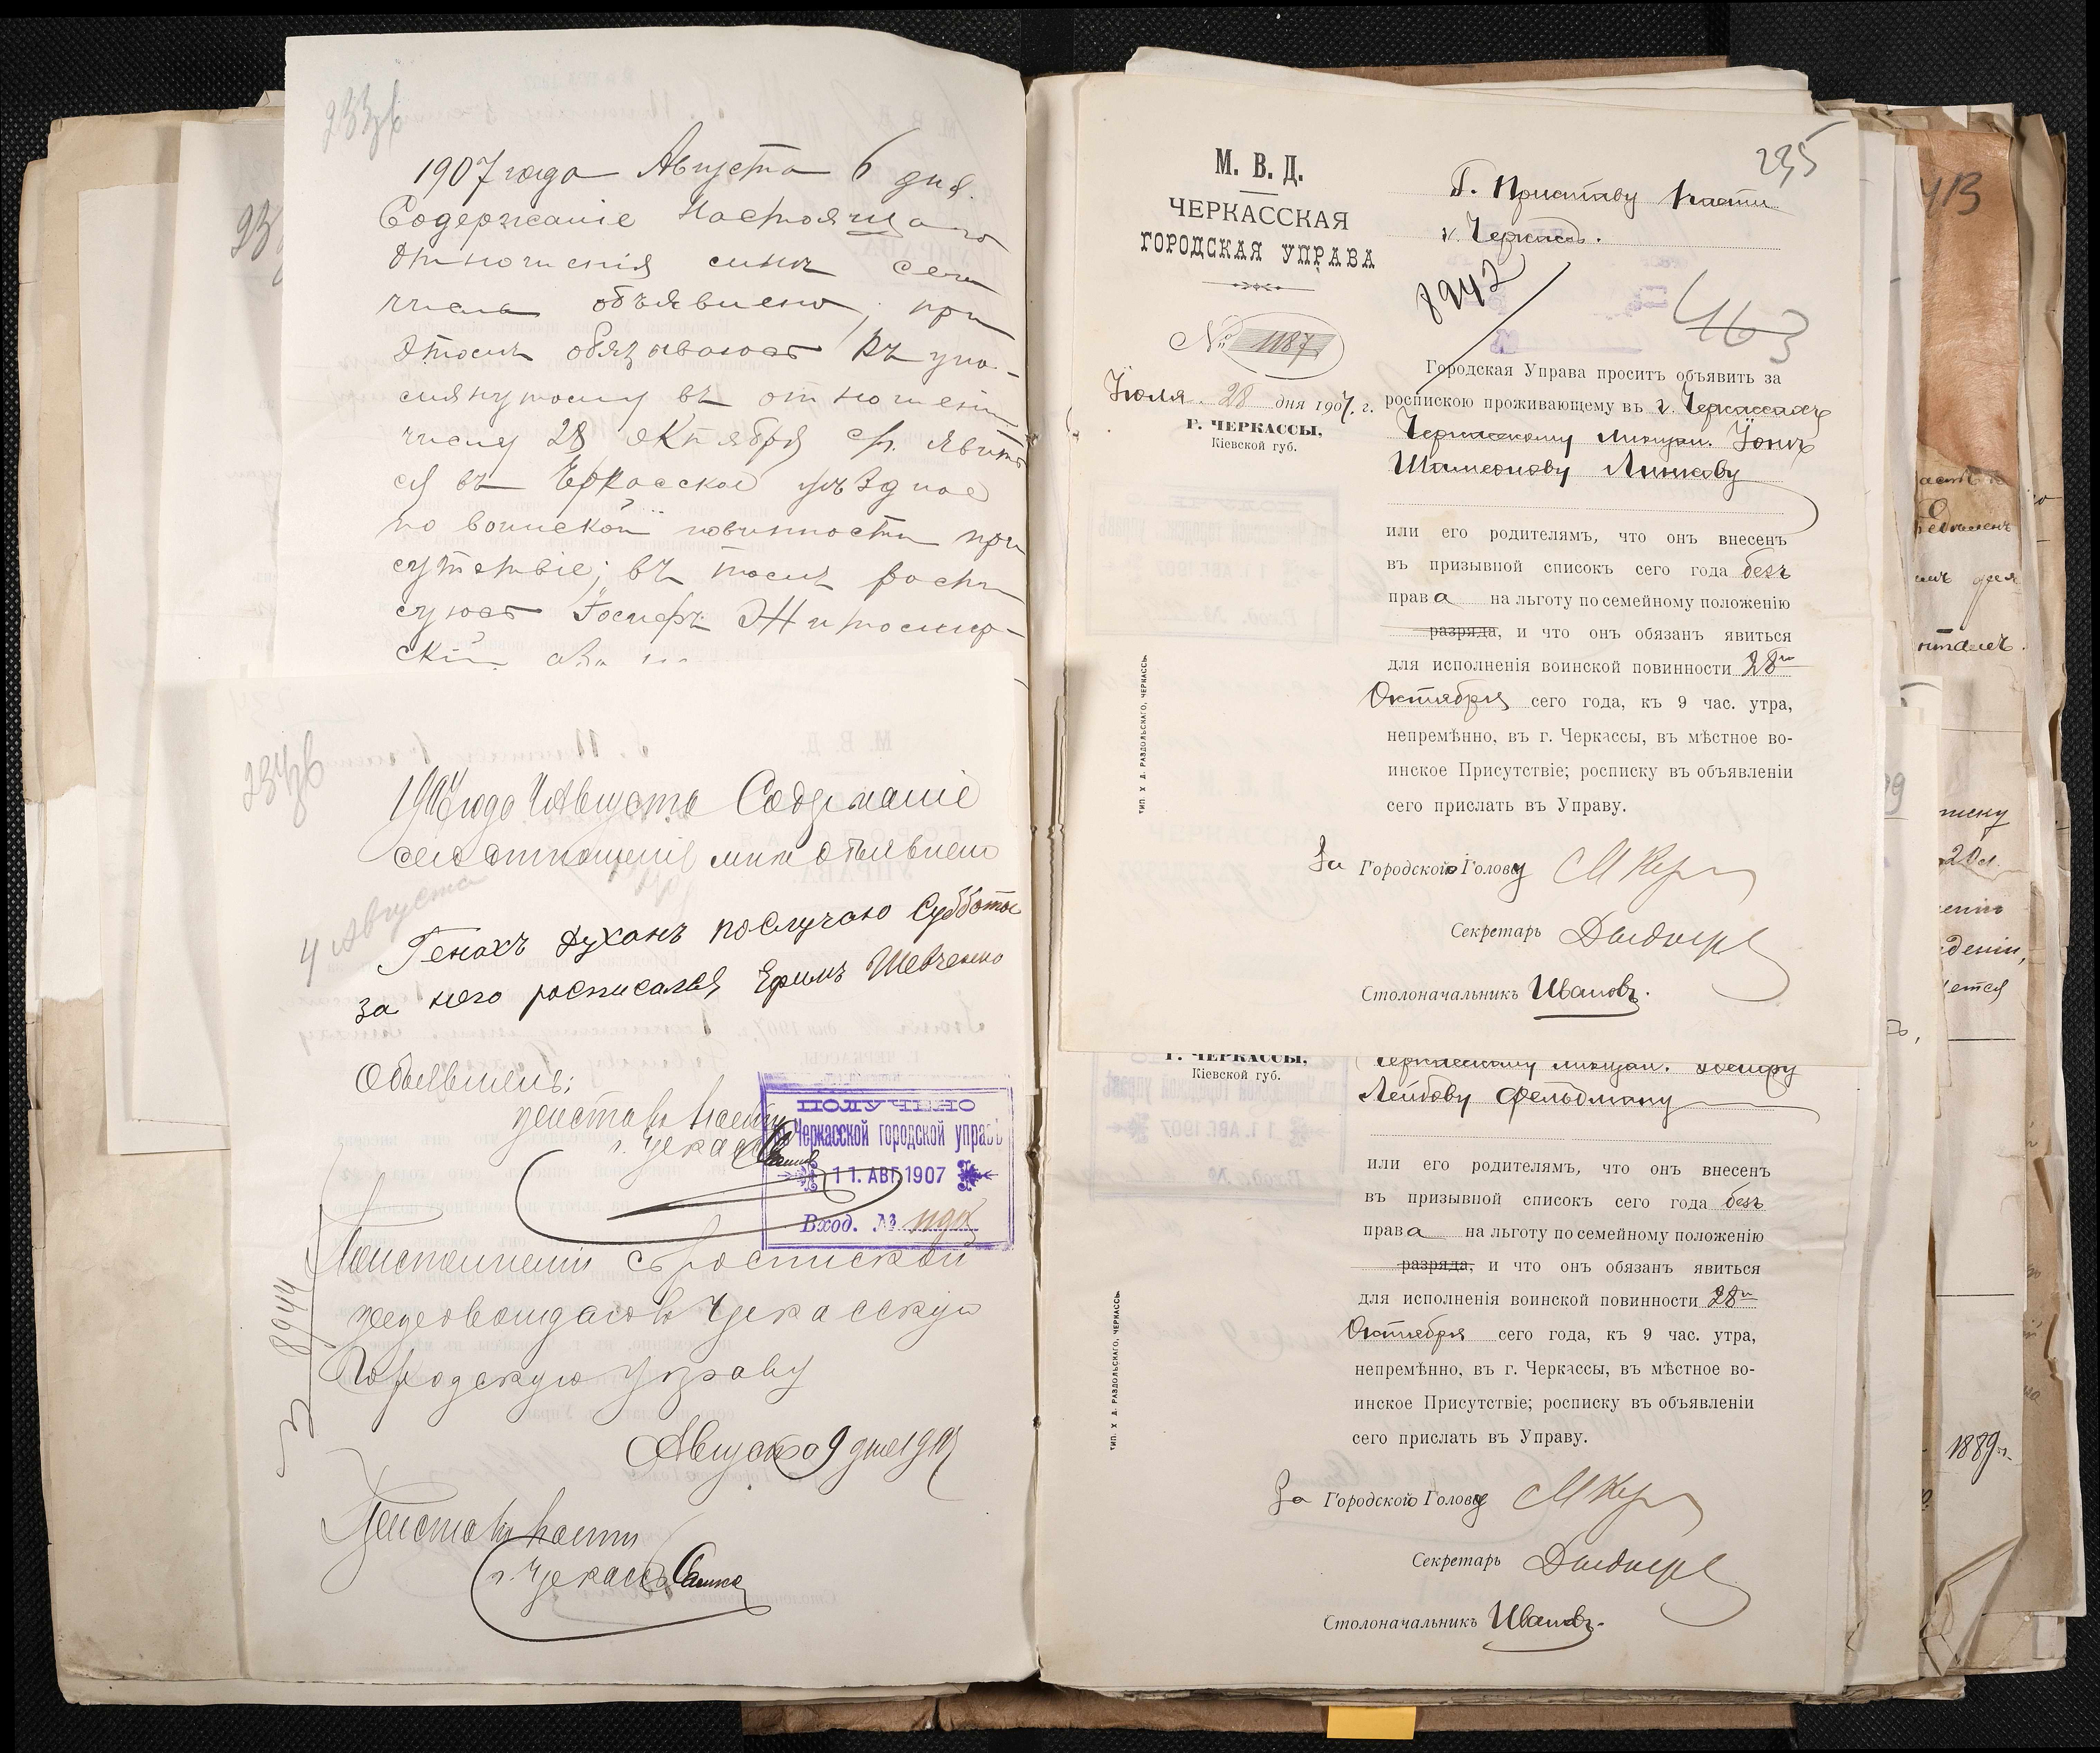 1907 года Августа 6 дня.
Содержаніе настоящаго
отношенія симъ сего
числа объявлено, при
этомъ обязываюсь къ упо-
мянутому въ отношеніи
числу 28 октября с/г. явить
ся въ Черкасское уѣздное
по воинской повинности при
сутствіе; въ томъ распи
суюсь Іосифъ Житомир-
скій
234об
1907 года Августа Содержаніе
сего отношенія мнѣ объявлено
4 Августа
Генахъ Духанъ по случаю Субботы
за него росписался Ефимъ Шевченко
Объявилъ:
Приставъ части
г. Черкассъ
ПОЛУЧЕНО
въ Черкасской городской управѣ
11. АВГ. 1907
Вход. №
Исполненіи съ роспиской
препровождаю въ Черкасскую
Городскую управу
8944
Августа 9 дня 1907
Приставъ части
г. Черкассъ
235
М. В. Д.
ЧЕРКАССКАЯ
ГОРОДСКАЯ УПРАВА
№ 1187
Іюля 28 дня 1907 г.
Г. ЧЕРКАССЫ,
Кіевской губ.
Г. Приставу части
г. Черкассъ.
8942
463
Городская Управа проситъ объявить за
роспискою проживающему въ г. Черкассахъ
Черкасскому мѣщан. Іонѣ
Шимонову Линкову
или его родителямъ, что онъ внесенъ
въ призывной списокъ сего года безъ
права на льготу по семейному положенію
разряда, и что онъ обязанъ явиться
для исполненія воинской повинности 28го
Октября сего года, къ 9 час. утра,
непремѣнно, въ г. Черкассы, въ мѣстное во-
инское Присутствіе; росписку въ объявленіи
сего прислать въ Управу.
За Городского Голову
Секретарь
Столоначальникъ Ивановъ.
ТИП. Х. Д. РАЗДОЛЬСКАГО, ЧЕРКАССЫ
Г. ЧЕРКАССЫ,
Кіевской губ.
Черкасскому мѣщан. Іосифу
Лейбову Фельдману
или его родителямъ, что онъ внесенъ
въ призывной списокъ сего года безъ
права на льготу по семейному положенію
разряда, и что онъ обязанъ явиться
для исполненія воинской повинности 28го
Октября сего года, къ 9 час. утра,
непремѣнно, въ г. Черкассы, въ мѣстное во-
инское Присутствіе; росписку въ объявленіи
сего прислать въ Управу.
За Городского Голову
Секретарь
Столоначальникъ Ивановъ.
ТИП. Х. Д. РАЗДОЛЬСКАГО, ЧЕРКАССЫ
1889 г.